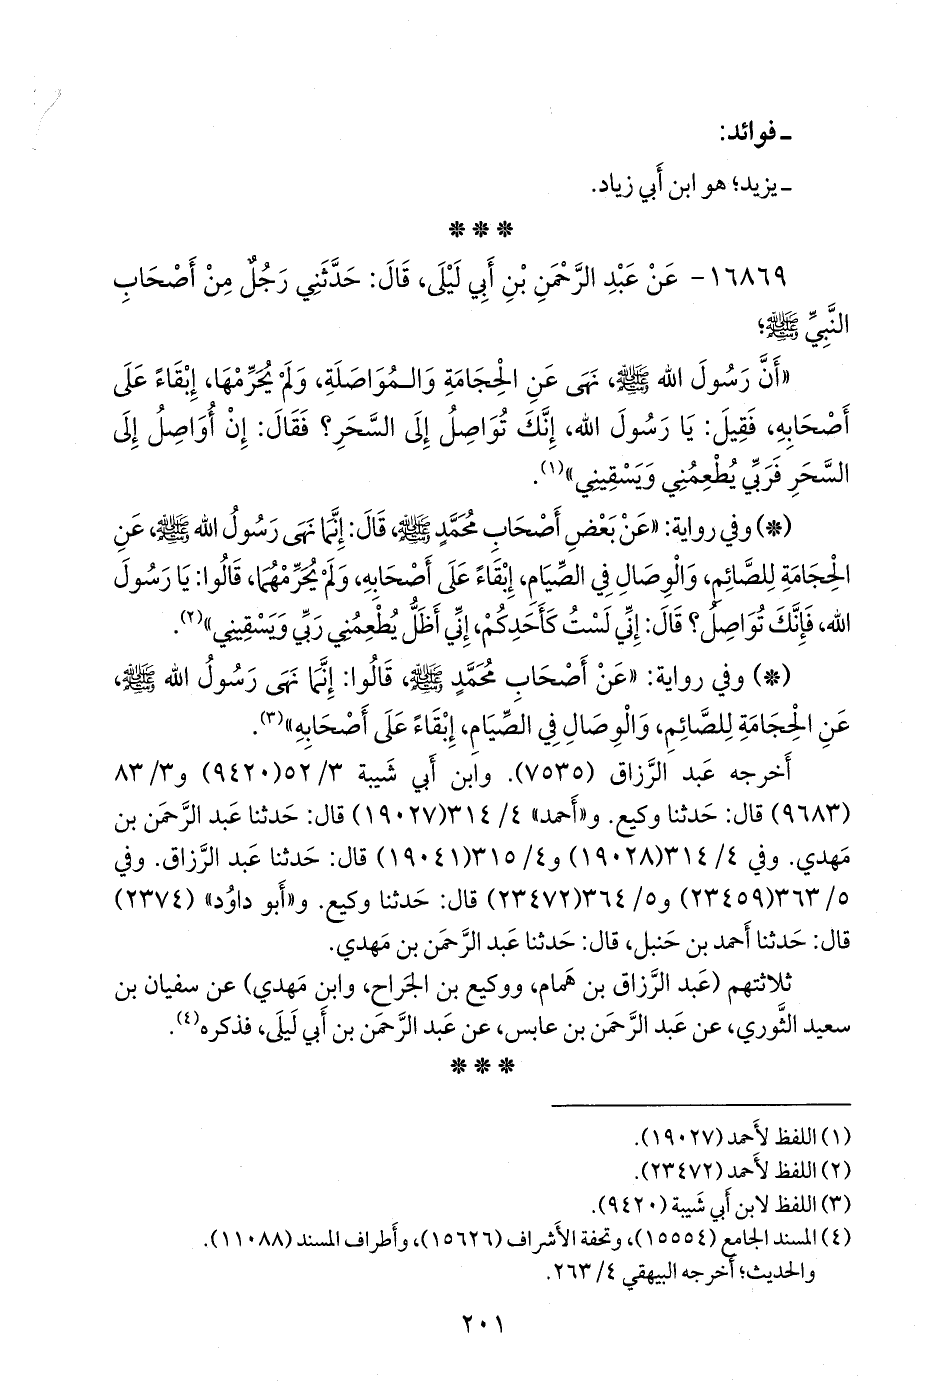 ـ فوائد:
ـ يزيد؛ هو ابن أَبي زياد.
* * *
١٦٨٦٩- عَنْ عَبْدِ الرَّحْمَنِ بْنِ أَبِي لَيْلَى، قَالَ: حَدَّثَنِي رَجُلٌ مِنْ أَصْحَابِ
النَّبِيِّ ﷺ؛
«أَنَّ رَسُولَ الله ﷺ، نَهَى عَنِ الْحِجَامَةِ وَالـمُوَاصَلَةِ، وَلَمْ يُحَرِّمْهَا، إِبْقَاءً عَلَى
أَصْحَابِهِ، فَقِيلَ: يَا رَسُولَ الله، إِنَّكَ تُوَاصِلُ إِلَى السَّحَرِ؟ فَقَالَ: إِنْ أُوَاصِلُ إِلَى
السَّحَرِ فَرَبِّي يُطْعِمُنِي وَيَسْقِينِي»(١).
(*) وفي رواية: «عَنْ بَعْضِ أَصْحَابِ مُحَمَّدٍ ﷺ، قَالَ: إِنَّمَا نَهَى رَسُولُ الله ﷺ، عَنِ
الْحِجَامَةِ لِلصَّائِمِ، وَالْوِصَالِ فِي الصِّيَامِ، إِبْقَاءً عَلَى أَصْحَابِهِ، وَلَمْ يُحَرِّمْهُمَا، قَالُوا: يَا رَسُولَ
الله، فَإِنَّكَ تُوَاصِلُ؟ قَالَ: إِنِّي لَسْتُ كَأَحَدِكُمْ، إِنِّي أَظَلُّ يُطْعِمُنِي رَبِّي وَيَسْقِينِي»(٢).
(*) وفي رواية: «عَنْ أَصْحَابِ مُحَمَّدٍ ﷺ، قَالُوا: إِنَّمَا نَهَى رَسُولُ الله ﷺ،
عَنِ الْحِجَامَةِ لِلصَّائِمِ، وَالْوِصَالِ فِي الصِّيَامِ، إِبْقَاءً عَلَى أَصْحَابِهِ»(٣).
أَخرجه عَبد الرَّزاق (٧٥٣٥). وابن أَبي شَيبة ٣/ ٥٢(٩٤٢٠) و٣/ ٨٣
(٩٦٨٣) قال: حَدثنا وكيع. و«أَحمد» ٤/ ٣١٤(١٩٠٢٧) قال: حَدثنا عَبد الرَّحمَن بن
مَهدي. وفي ٤/ ٣١٤(١٩٠٢٨) و٤/ ٣١٥(١٩٠٤١) قال: حَدثنا عَبد الرَّزاق. وفي
٥/ ٣٦٣(٢٣٤٥٩) و٥/ ٣٦٤(٢٣٤٧٢) قال: حَدثنا وكيع. و«أَبو داوُد» (٢٣٧٤)
قال: حَدثنا أَحمد بن حَنبل، قال: حَدثنا عَبد الرَّحمَن بن مَهدي.
ثلاثتهم (عَبد الرَّزاق بن هَمام، ووكيع بن الجَراح، وابن مَهدي) عن سفيان بن
سعيد الثَّوري، عن عَبد الرَّحمَن بن عابس، عن عَبد الرَّحمَن بن أَبي لَيلَى، فذكره(٤).
* * *
(١) اللفظ لأَحمد (١٩٠٢٧).
(٢) اللفظ لأَحمد (٢٣٤٧٢).
(٣) اللفظ لابن أَبي شَيبة (٩٤٢٠).
(٤) المسند الجامع (١٥٥٥٤)، وتحفة الأَشراف (١٥٦٢٦)، وأَطراف المسند (١١٠٨٨).
والحديث؛ أَخرجه البيهقي ٤/ ٢٦٣.
٢٠١